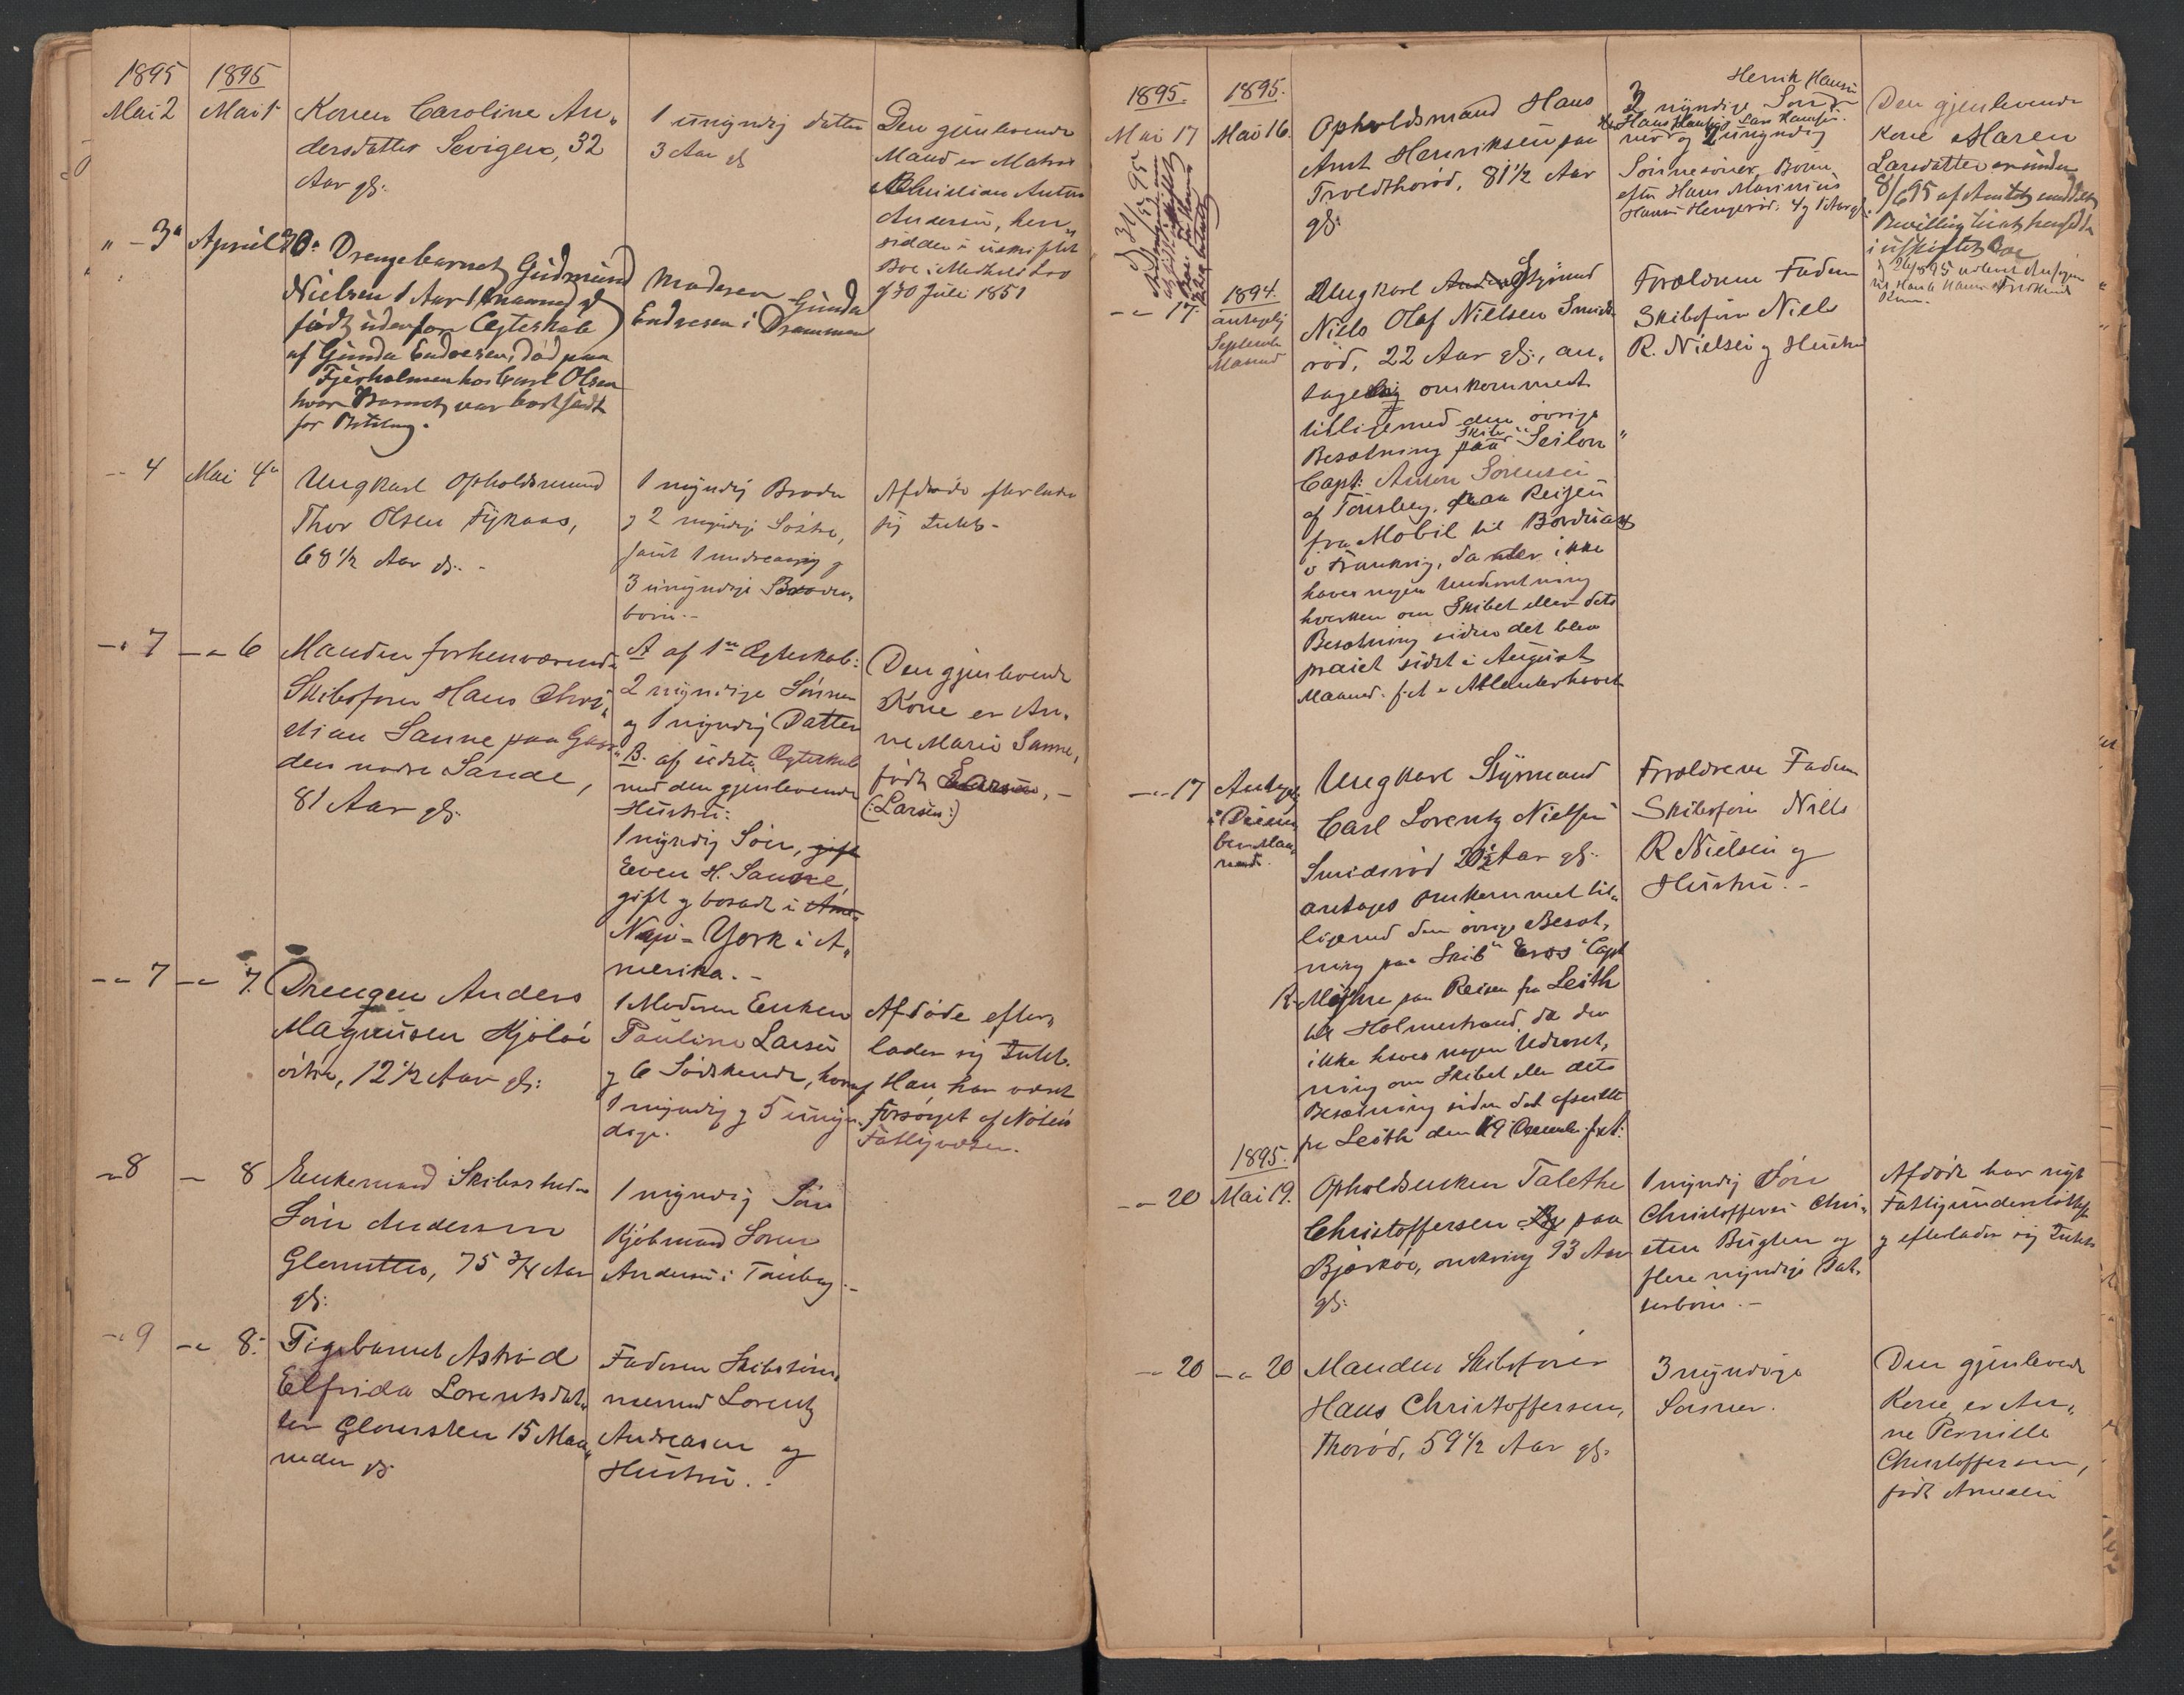 1895 1895
Mai 2 Mai 1 Konen Caroline An„
dersdatter Sevigen, 32
Aar gl:
1 umyndig datter
3 Aar gl
Den gjenlevende
Mand er Matros
Christian Anton
Andersen, hen„
sidder i uskiftet
Bo i Medhold Lov
af 30 Juli 1851
" - 3 April 30 Drengebarnet Gudmund
Nielsen 1 Aar 1 Maaned gl
født udenfor Ægteskab
af Gunda Endresen, død paa
Fjærholmen hos Carl Olsen
hvor Barnet var bortsadt
for Betaling.
Moderen Gunda
Endresen i Drammen
-- 4 Mai 4 Ungkarl Opholdsmand
Thor Olsen Fynaas,
68 1/2 Aar gl. -
1 myndig Broder
og 2 myndige Søstre,
samt 1 mindreaarig og
3 umyndige Broder„
børn. -
Afdøde efterlader
sig Intet -
-" 7 -" 6 Manden forhenværende
Skibsfører Hans Chri„
stian Sanne paa Gaar„
den nedre Sande,
81 Aar gl.
A af 1ste Ægteskab:
2 myndige Sønner
og 1 myndig Datter
B. af sidste Ægteskab
med den gjenlevende
Hustru:
1 myndig Søn, gift
Even H. Sanne,
gift og bosadt i Ame
New-York i A„
merika. -
Den gjenlevende
Kone er An„
ne Marie Sanne,
født Larsen, -
(:Larsen:)
-" 7 -" 7. Drengen Anders
Magnusen Kjøløe
østre, 12 1/2 Aar gl:
1 Moderen Enken
Pauline Larsen
og 6 Sødskende, hvoraf
1 myndig og 5 umyn„
dige.
Afdøde efter„
lader sig Intet.
Han har været
forsørget af Nøterø
Fattigvæsen.
-" 8 - 8 Enkemand Skibsrheder
Søren Andersen
Glomsten, 75 3/4 Aar
gl:
1 myndig Søn
Kjøbmand Søren
Andersen i Tønsberg. -
-" 9 -" 8. Pigebarnet Astrid
Elfrida Lorentsdat„
ter Glomsten 15 Maa„
neder gl.
Faderen Skibstøm„
mermand Lorentz
Andreasen og
Hustru. -
1895. 1895.
Mai 17 Mai 16. Opholdsmand Hans
Arnt Henriksen paa
Troldthorød, 81 1/2 Aar
gl:
Henrik Hansen
3 myndige Søn„
Hans Hansen Lars Hansen
ner og 2 umyndig
Sønnesønner, Børn
efter Hans Marinius
Hansen Hengerød. 4 og 1 Aar gl.
Den gjenlevende
Kone Maren
Larsdatter er under
8/6 95 af Amtet meddelt
Bevilling til at hensidde
i uskiftet Bo
-" 17. 1894.
antagelig
September
Maaned
Ungkarl Styrmand
Niels Olaf Nielsen Smids
rød, 22 Aar gl:, an„
tagelig omkommet
tilligemed den øvrige
Besætning paa Skibet "Seilon"
Capt: Anton Sørensen
af Tønsberg, paa Reisen
fra Mobil til Bordeaux
i Frankrig, da der ikke
haves nogen Underretning
hverken om Skibet eller dets
Besætning siden det blev
praiet sidst i August
Maaned f. A. i Atlanterhavet
Forældrene Faderen
Skibsfører Niels
R. Nielsen og Hustru
-" 17 Antagelig
i Decem
ber Maa„
ned.
Ungkarl Styrmand
Carl Lorentz Nielsen
Smidsrød 20 1/2 Aar gl.
antages omkommet til„
ligemed den øvrige Besæt„
ning paa Skib "Eros" Capt
R. Møyhre paa Reisen fra Leith
til Holmestrand, da der
ikke haves nogen Underret„
ning om Skibet eller dets
Besætning siden det afseilte
fra Leith den 19 December f. A.:
Forældrene Faderen
Skibsfører Niels
R Nielsen og
Hustru. -
1895.
-" 20 Mai 19. Opholdsenken Talethe
Christoffersen paa
Bjerkøe, omkring 93 Aar
gl:
1 myndig Søn
Christoffer Chri„
sten Buglen og
flere myndige Dat„
terbørn. -
Afdøde har nydt
Fattigunderstøttelse
og efterlader sig Intet
-" 20 -" 20 Manden Skibsfører
Hans Christoffersen,
Thorød, 59 1/2 Aar gl.
3 myndige
Sønner.
Den gjenlevende
Kone er An„
ne Pernille
Christoffersen,
født Arnesen